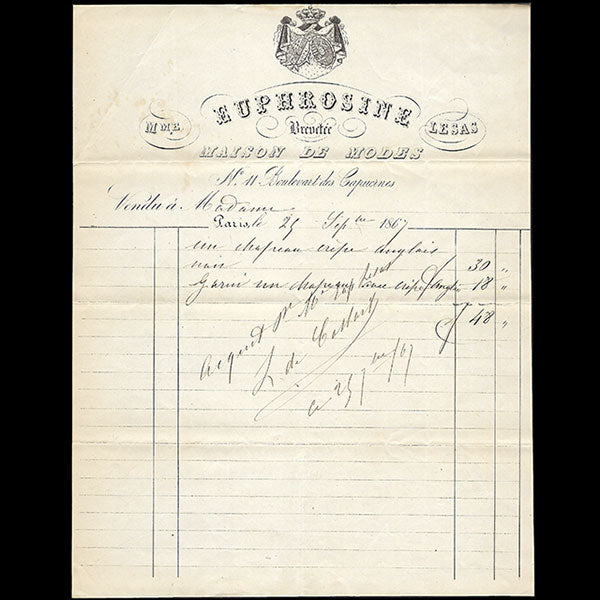 EUPHROSINE
MME Brevetée LESAS
MAISON DE MODES
No. 11 Boulevart des Capucines
Vendu à Madame
Paris, le 25 Septbre 1867
un chapeau crêpe anglais
noir 30 "
Garni un chapeau avec crêpe anglais 18 "
48 "
Acquit Pr Mme Lesas
L. de
ce 25 7bre/67